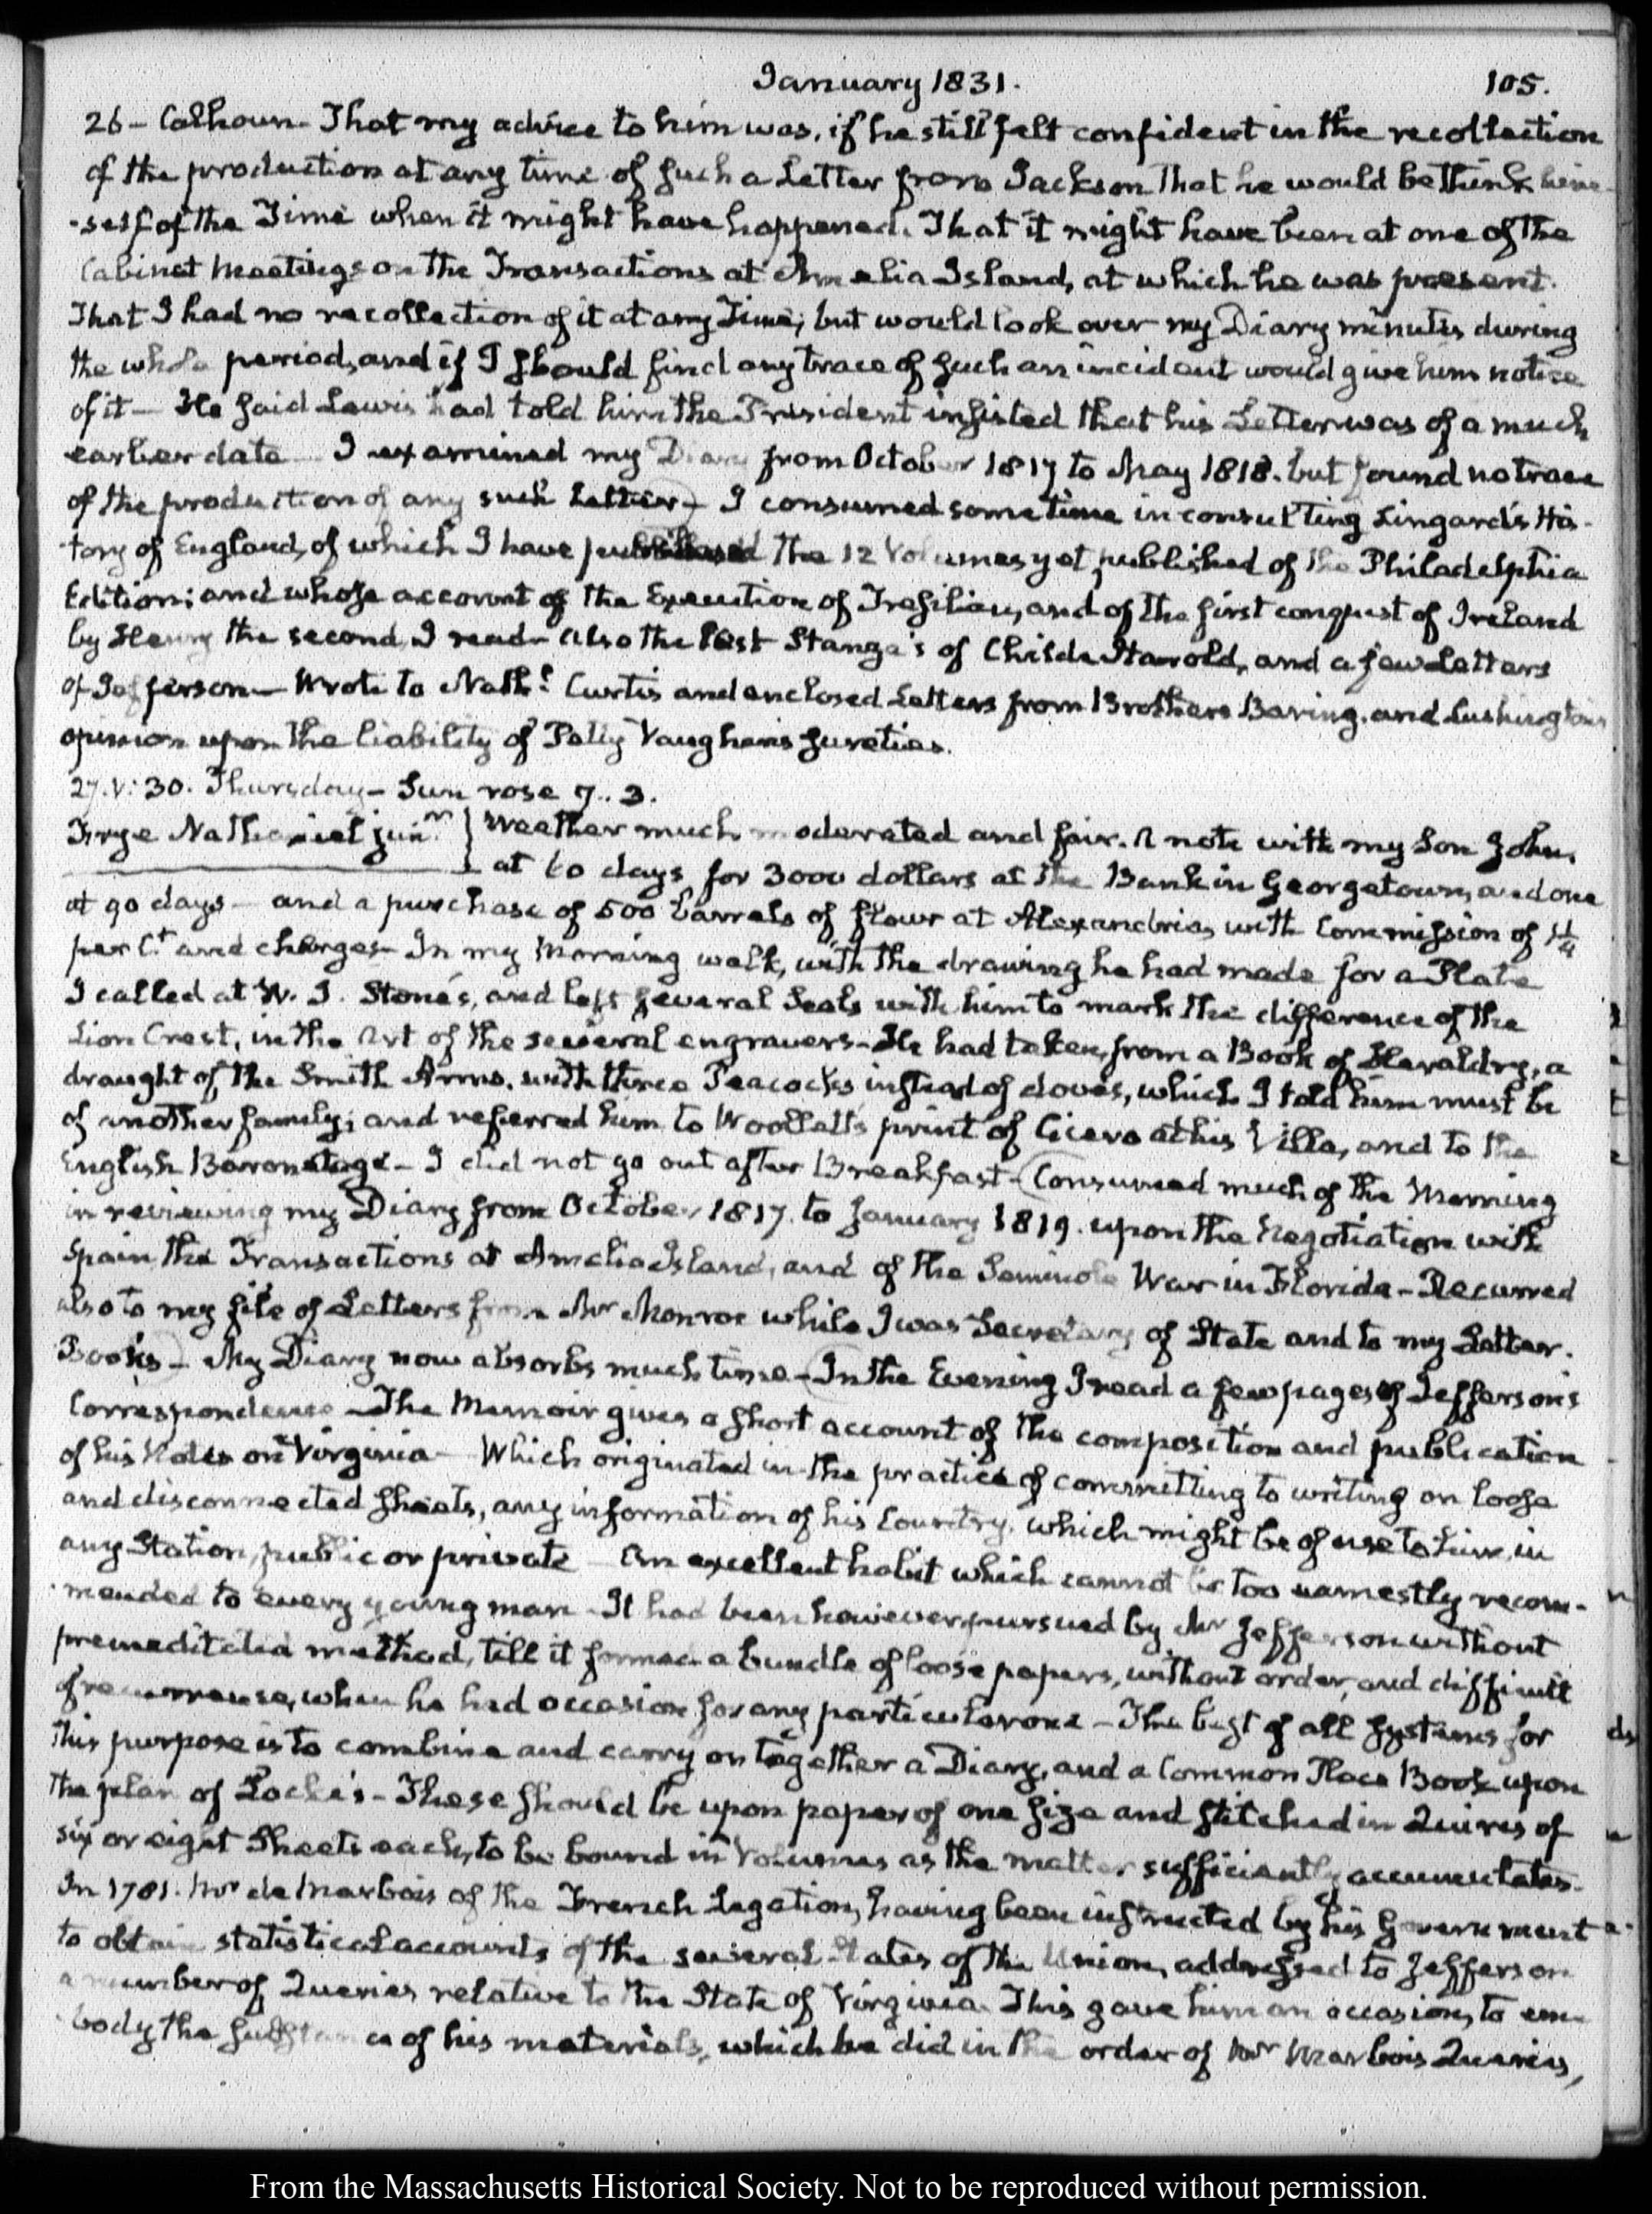 January 1831.
105.
26 – Calhoun – That my advice to him was, if he still felt confident in the recollection
of the production at any time of such a Letter from Jackson that he would bethink him-
-self of the Time when it might have happened. That it might have been at one of the
Cabinet Meetings on the Transactions at Amelia Island, at which he was present.
That I had no recollection of it at any Time; but would look over my Diary minutes during
the whole period, and if I should find any trace of such an incident would give him notice
of it – He said Lewis had told him the President insisted that his Letter was of a much
earlier date – I examined my Diary from October 1817 to May 1818. but found no trace
of the production of any such Letter – I consumed some time in consulting Lingard's His-
tory of England, of which I have the 12 Volumes yet published of the Philadelphia
Edition; and whose account of the Execution of Tresilian, and of the first conquest of Ireland
by Henry the second, I read – also the last Stanza's of Childe Harold, and a few Letters
of Jefferson – Wrote to Nathl. Curtis and enclosed Letters from Brothers Baring, and Lushington's
opinion upon the liability of Petty Vaughan's sureties.
27. V: 30. Thursday – Sun rose 7..3.
Frye Nathaniel junr } Weather much moderated and fair. A note with my Son John,
at 60 days for 3000 dollars at the Bank in Georgetown, and one
at 90 days – and a purchase of 500 barrels of flour at Alexandria, with Commission of 1¼
per Ct. and charges – In my Morning walk, with the drawing he had made for a Plate
I called at W. J. Stone's, and left several Seals with him to mark the difference of the
Lion Crest, in the Art of the several engravers – He had taken, from a Book of Heraldry, a
draught of the Smith Arms, with three Peacocks instead of doves, which I told him must be
of another family; and referred him to Woollatt's print of Cicero at his Villa, and to the
English Baronetage – I did not go out after Breakfast – Consumed much of the Morning
in reviewing my Diary from October 1817. to January 1819. upon the Negotiation with
Spain, the Transactions at Amelia Island, and of the Seminole War in Florida – Recurred
also to my file of Letters from Mr Monroe while I was Secretary of State and to my Letter-
Books – My Diary now absorbs much time – In the Evening I read a few pages of Jefferson's
Correspondence – The Memoir gives a short account of the composition and publication
of his Notes on Virginia – Which originated in the practice of committing to writing on loose
and disconnected sheets, any information of his Country, which might be of use to him, in
any Station, public or private – An excellent habit which cannot be too earnestly recom-
mended to every young man – It had been however pursued by Mr Jefferson without
premeditated method, till it formed a bundle of loose papers, without order, and difficult
of recurrence, when he had occasion for any particular one – The best of all systems for
this purpose is to combine and carry on together a Diary, and a Common Place Book upon
the plan of Locke's – These should be upon paper of one size and stitched in Quires of
six or eight Sheets each, to be bound in Volumes as the matter sufficiently accumulates.
In 1781. Mr de Marbois of the French Legation, having been instructed by his Government
to obtain statistical accounts of the several States of the Union, addressed to Jefferson
a number of Queries relative to the State of Virginia. This gave him an occasion, to em-
body the substance of his materials, which he did in the order of Mr Marbois Queries,
From the Massachusetts Historical Society. Not to be reproduced without permission.